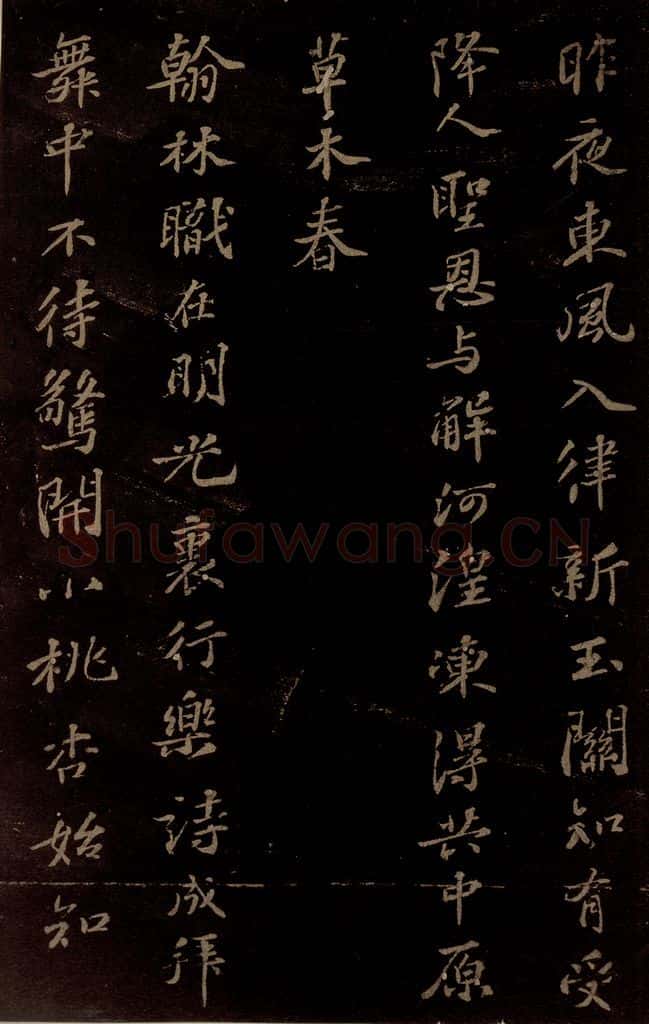 昨夜東風入律新玉關知有受
降人聖恩与解河湟凍得共中原
草木春
翰林職在明光裏行樂詩成拜
舞中不待驚開小桃杏始知
Shufawang.CN